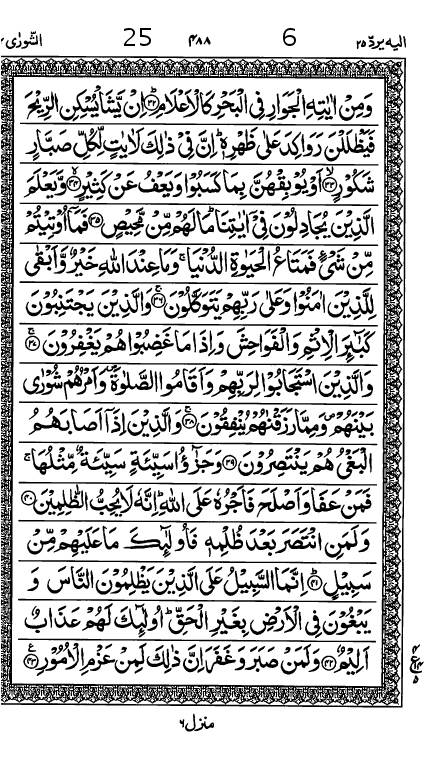 اليه يرد ٢٥ 25 ٤٨٨ 6 الشورى ٤٢
وَمِنْ اٰيٰتِهِ الْجَوَارِ فِي الْبَحْرِ كَالْاَعْلَامِ ؕ﴿۳۲﴾ اِنْ يَّشَاْ يُسْكِنِ الرِّيْحَ
فَيَظْلَلْنَ رَوَاكِدَ عَلٰى ظَهْرِهٖ ؕ اِنَّ فِيْ ذٰلِكَ لَاٰيٰتٍ لِّكُلِّ صَبَّارٍ
شَكُوْرٍ ۙ﴿۳۳﴾ اَوْ يُوْبِقْهُنَّ بِمَا كَسَبُوْا وَيَعْفُ عَنْ كَثِيْرٍ ۫﴿۳۴﴾ وَّيَعْلَمَ
الَّذِيْنَ يُجَادِلُوْنَ فِيْۤ اٰيٰتِنَا ؕ مَا لَهُمْ مِّنْ مَّحِيْصٍ ﴿۳۵﴾ فَمَاۤ اُوْتِيْتُمْ
مِّنْ شَيْءٍ فَمَتَاعُ الْحَيٰوةِ الدُّنْيَا ۚ وَمَا عِنْدَ اللّٰهِ خَيْرٌ وَّاَبْقٰى
لِلَّذِيْنَ اٰمَنُوْا وَعَلٰى رَبِّهِمْ يَتَوَكَّلُوْنَ ۚ﴿۳۶﴾ وَالَّذِيْنَ يَجْتَنِبُوْنَ
كَبٰٓئِرَ الْاِثْمِ وَالْفَوَاحِشَ وَاِذَا مَا غَضِبُوْا هُمْ يَغْفِرُوْنَ ۚ﴿۳۷﴾
وَالَّذِيْنَ اسْتَجَابُوْا لِرَبِّهِمْ وَاَقَامُوا الصَّلٰوةَ ۪ وَاَمْرُهُمْ شُوْرٰى
بَيْنَهُمْ ۪ وَمِمَّا رَزَقْنٰهُمْ يُنْفِقُوْنَ ۚ﴿۳۸﴾ وَالَّذِيْنَ اِذَاۤ اَصَابَهُمُ
الْبَغْيُ هُمْ يَنْتَصِرُوْنَ ﴿۳۹﴾ وَجَزٰٓؤُا سَيِّئَةٍ سَيِّئَةٌ مِّثْلُهَا ۚ
فَمَنْ عَفَا وَاَصْلَحَ فَاَجْرُهٗ عَلَى اللّٰهِ ؕ اِنَّهٗ لَا يُحِبُّ الظّٰلِمِيْنَ ﴿۴۰﴾
وَلَمَنِ انْتَصَرَ بَعْدَ ظُلْمِهٖ فَاُولٰٓئِكَ مَا عَلَيْهِمْ مِّنْ
سَبِيْلٍ ؕ﴿۴۱﴾ اِنَّمَا السَّبِيْلُ عَلَى الَّذِيْنَ يَظْلِمُوْنَ النَّاسَ وَ
يَبْغُوْنَ فِي الْاَرْضِ بِغَيْرِ الْحَقِّ ؕ اُولٰٓئِكَ لَهُمْ عَذَابٌ
اَلِيْمٌ ﴿۴۲﴾ وَلَمَنْ صَبَرَ وَغَفَرَ اِنَّ ذٰلِكَ لَمِنْ عَزْمِ الْاُمُوْرِ ﴿۴۳﴾
منزل ٦